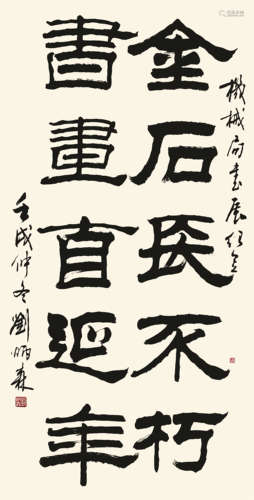 機械局書展紀念
金石長不朽
書畫自延年
壬戌仲冬劉炳森